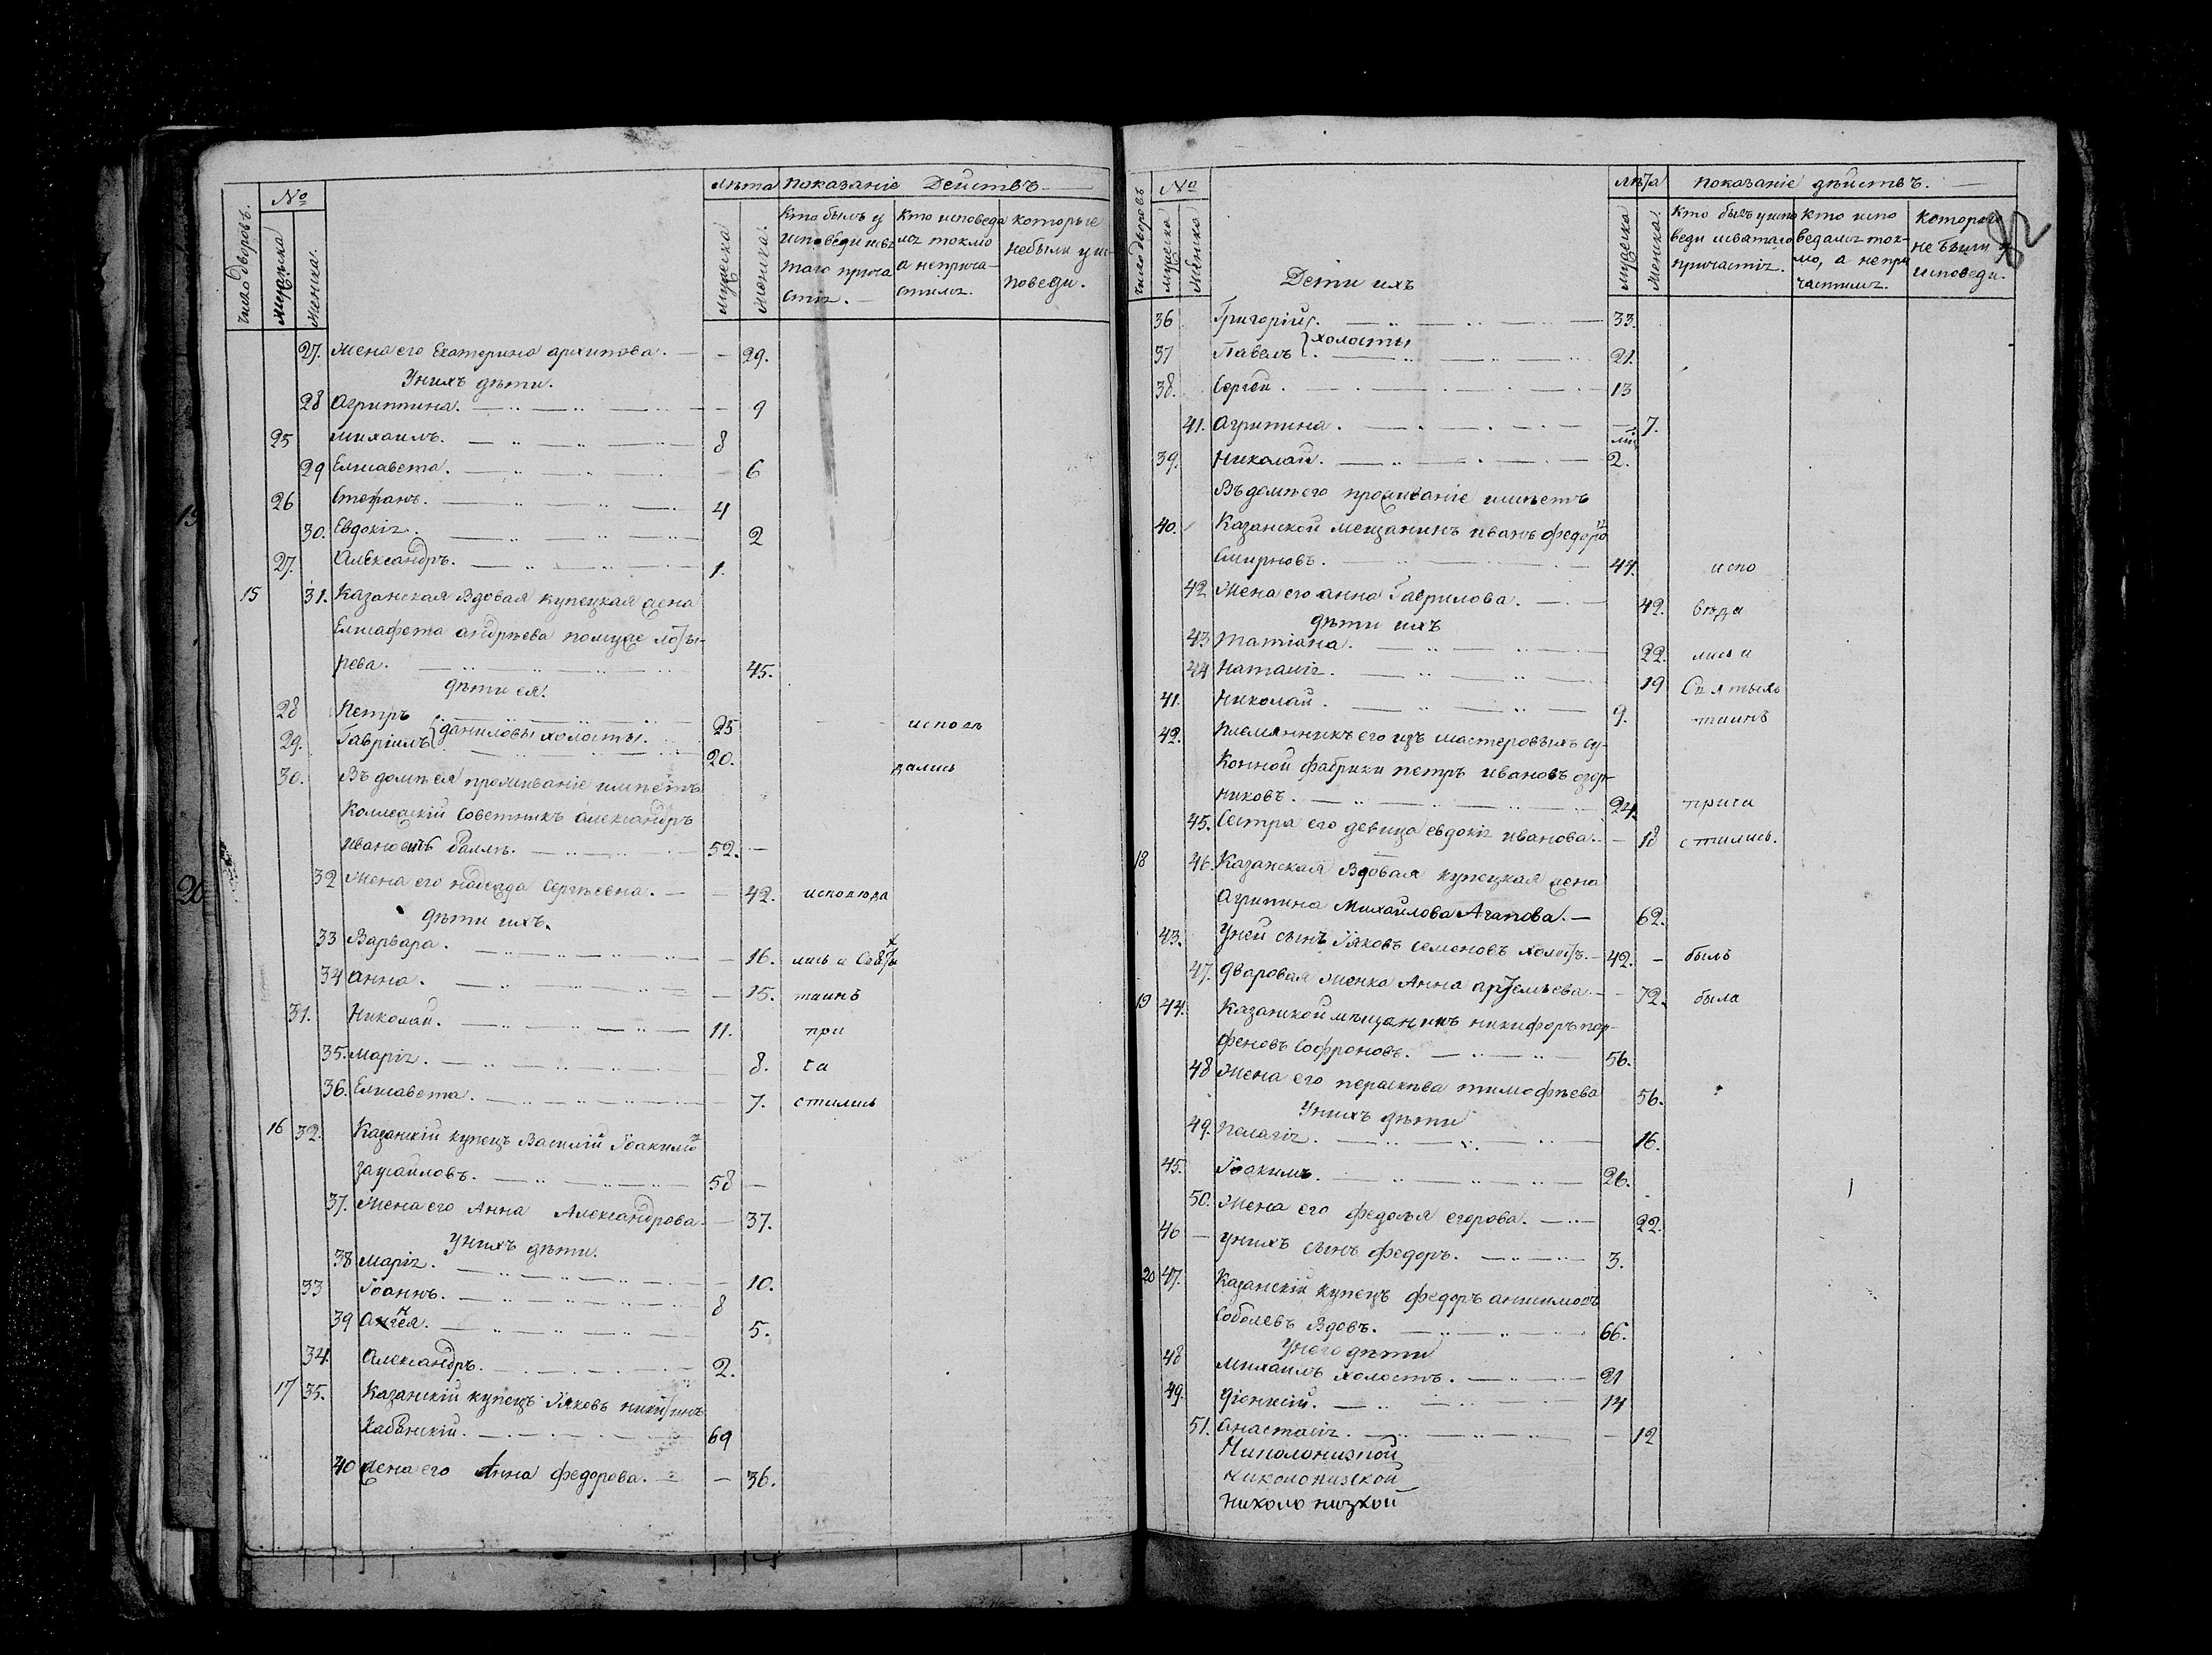 число дворовъ.
№
Мужеска
Женска.
лѣта
мужеска
женска.
показаніе Действъ
Кто былъ у исповеди исвятаго прича стія.
Кто исповеда лся токмо а неприча стился.
которые небыли у ис поведи.
27. Жена его Екатерина архипова. 29.
Унихъ дѣти.
28 Агриппина. 9
25 михаилъ. 8
29 Елисавета. 6
26 Стефанъ. 4
30. Евдокія. 2
27. Александръ. 1.
15 31. Казанская вдовая купецкая жена
Елисафета андрѣева помуже
рева. 45.
дѣти ея.
28 Петръ 25 исповѣ
29. Гавріилъ даниловы холосты. 20. дались
30. Въ домѣ ея проживаніе имѣетъ
Коллежскій Советникъ александръ
ивановичъ 52.
32 Жена его надежда Сергѣевна. 42. исповѣда
дѣти ихъ.
33 Варвара. 16. лись и Свѧты
34 анна. 15. таинъ
31. Николай. 11. при
35. марія. 8. ча
36. Елисавета. 7. стились
16 32. Казанскій купецъ Василій Іоакимо
58
37. Жена его Анна Александрова. 37.
унихъ дѣти.
38 марія. 10.
33 Іоаннъ. 8
39 5.
34. Александръ. 2.
17 35. Казанскій купецъ Іяковъ никитинъ
Кабанскій. 69
40 жена его Анна федорова. 36.
число дворовъ
№
мужеска
Женска
лѣта
мужеска
Женска.
показаніе дѣйствъ.
Кто былъ уиспо веди исватаго причастія.
кто испо ведался ток- мо, а непри частился.
Которые не были у исповеди.
82
Дети ихъ
36 Григорій 33.
37 Павелъ холосты 21.
38. Сергей. 13
41. Агрипина. 7.
39. Николай. 2.
Въ домѣ его проживаніе имѣетъ
40. Казанской мещанинъ иванъ федоро
Смирновъ. 44. испо
42 Жена его анна Гаврилова. 42. вѣда
дѣти ихъ
43 Татіана. 22. лись и
44 Наталія. 19 Святыхъ
41. Николай. 9. таинъ
42. Племянникъ его изъ мастеровыхъ су-
Конной фабрики петръ ивановъ озер-
никовъ. 24. прича
45. Сестра его девица евдокія иванова. 18 стились.
18 46. Казанская Вдовая купецкая жена
Агрипина Михайлова Агапова. 62.
43. Уней сынъ Іяковъ семеновъ холостъ. 42. былъ
47. дваровая женка Анна артемьева. 72. была
19 44. Казанской мѣщанинъ никифоръ пар-
феновъ Софроновъ. 56.
48 Жена его перасквва тимофѣева 56.
Унихъ дѣти
49. Пелагія. 16.
45. Іоакимъ. 26.
50. Жена его федосья егорова. 22.
46 унихъ сынъ федоръ. 3.
20 47. Казанскій купецъ федоръ анисимовъ
Соболевъ вдовъ. 66.
Унего дѣти
48 михаилъ холостъ. 21
49. Діонисій. 14
51. Анастасія. 12
Николонизкой
Николонизской
николо низкой